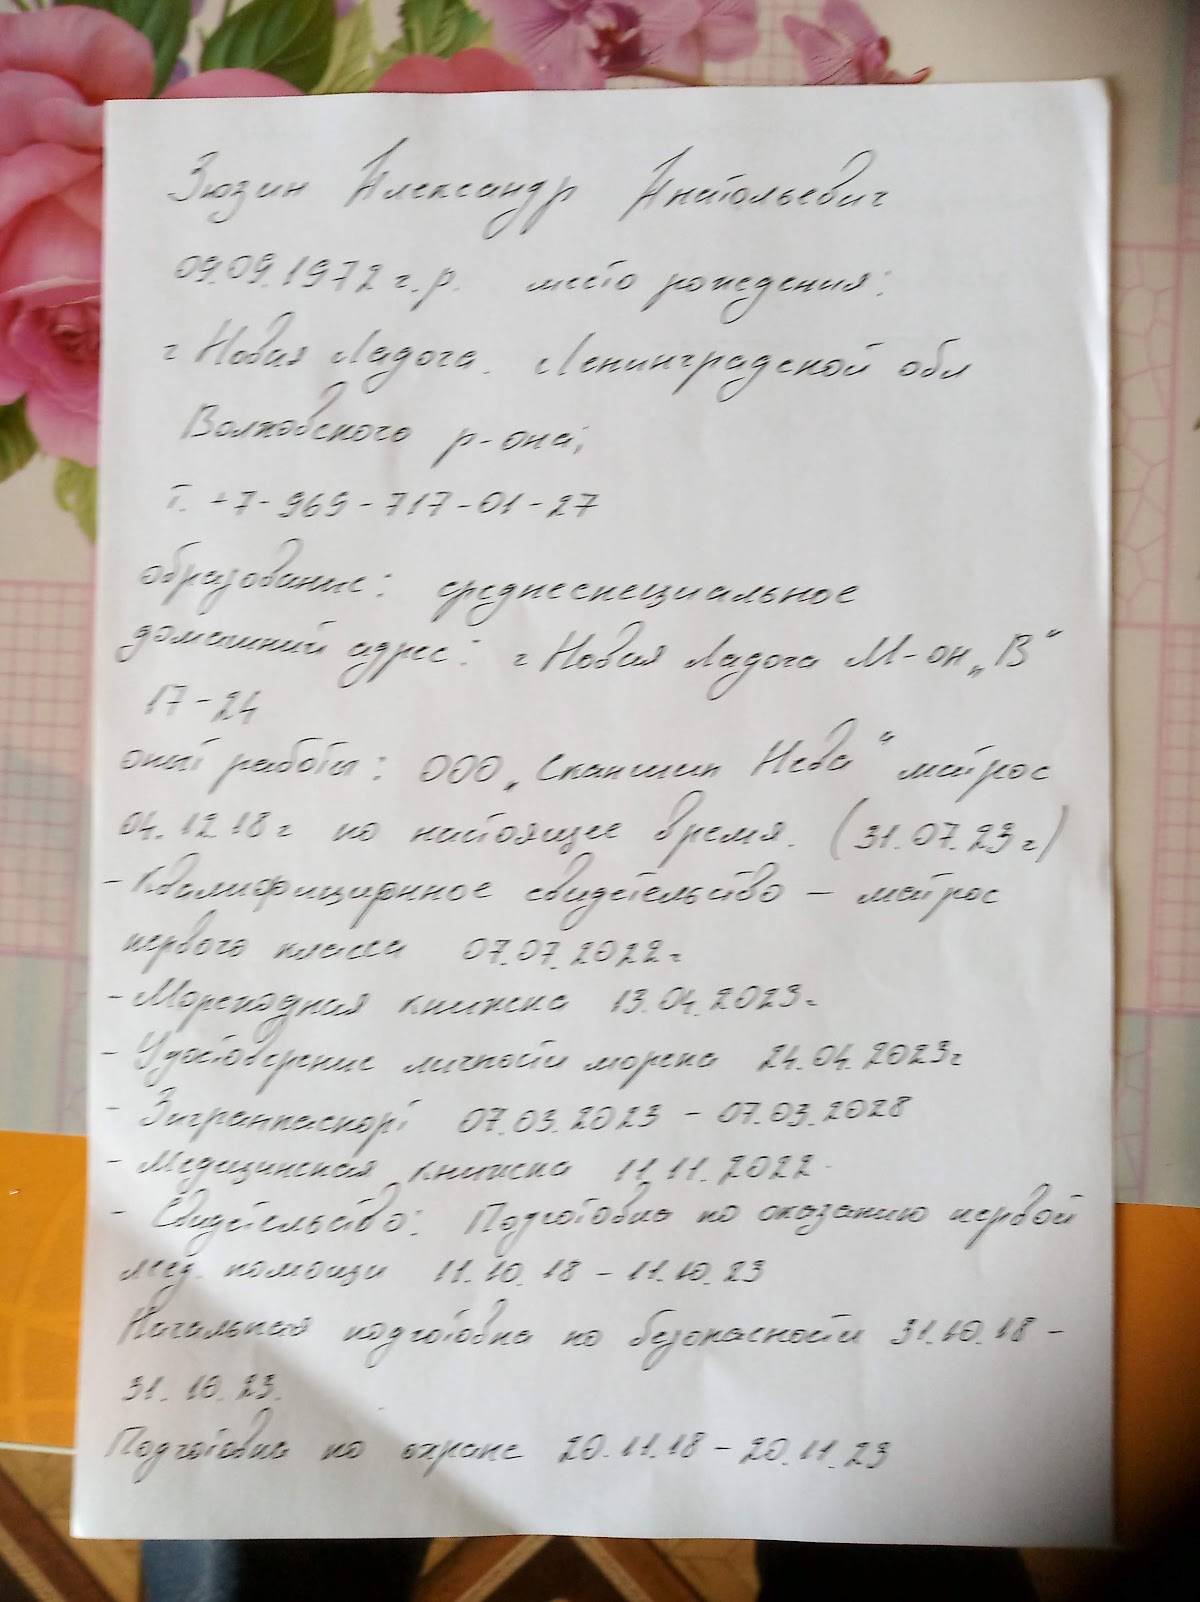 Зюзин Александр Анатольевич
09.09.1972 г.р. место рождения:
г Новая Ладога. Ленинградской обл
Волховского р-она;
т. +7-969-717-01-27
образование: среднеспециальное
домашний адрес: г Новая Ладога М-он „В“
17-24
опыт работы: ООО „Скансшип Нева“ матрос
04.12 18 г по настоящее время. (31.07.23 г)
- Квалифицирнное свидетельство - матрос
первого класса 07.07.2022г
- Мореходная книжка 13.04.2023г
- Удостоверение личности моряка 24.04.2023г
- Загранпаспорт 07.03.2023 - 07.03.2028
- Медицинская книжка 11.11.2022
- Свидетельство: Подготовка по оказанию первой
мед. помощи 11.10.18 - 11.10.23
Начальная подготовка по безопасности 31.10.18 -
31.10.23.
Подготовка по охране 20.11.18 - 20.11.23